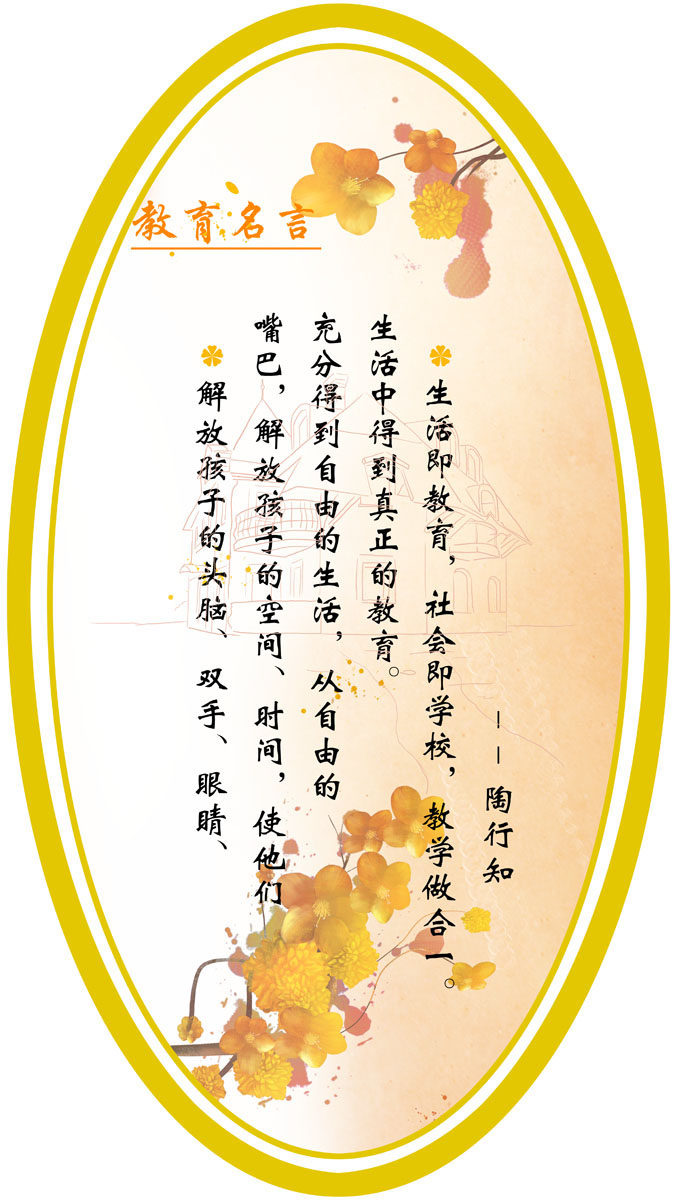 教育名言
解放孩子的头脑、双手、眼睛、
嘴巴，解放孩子的空间、时间，使他们
充分得到自由的生活，从自由的
生活中得到真正的教育。
生活即教育，社会即学校，教学做合一。
——陶行知